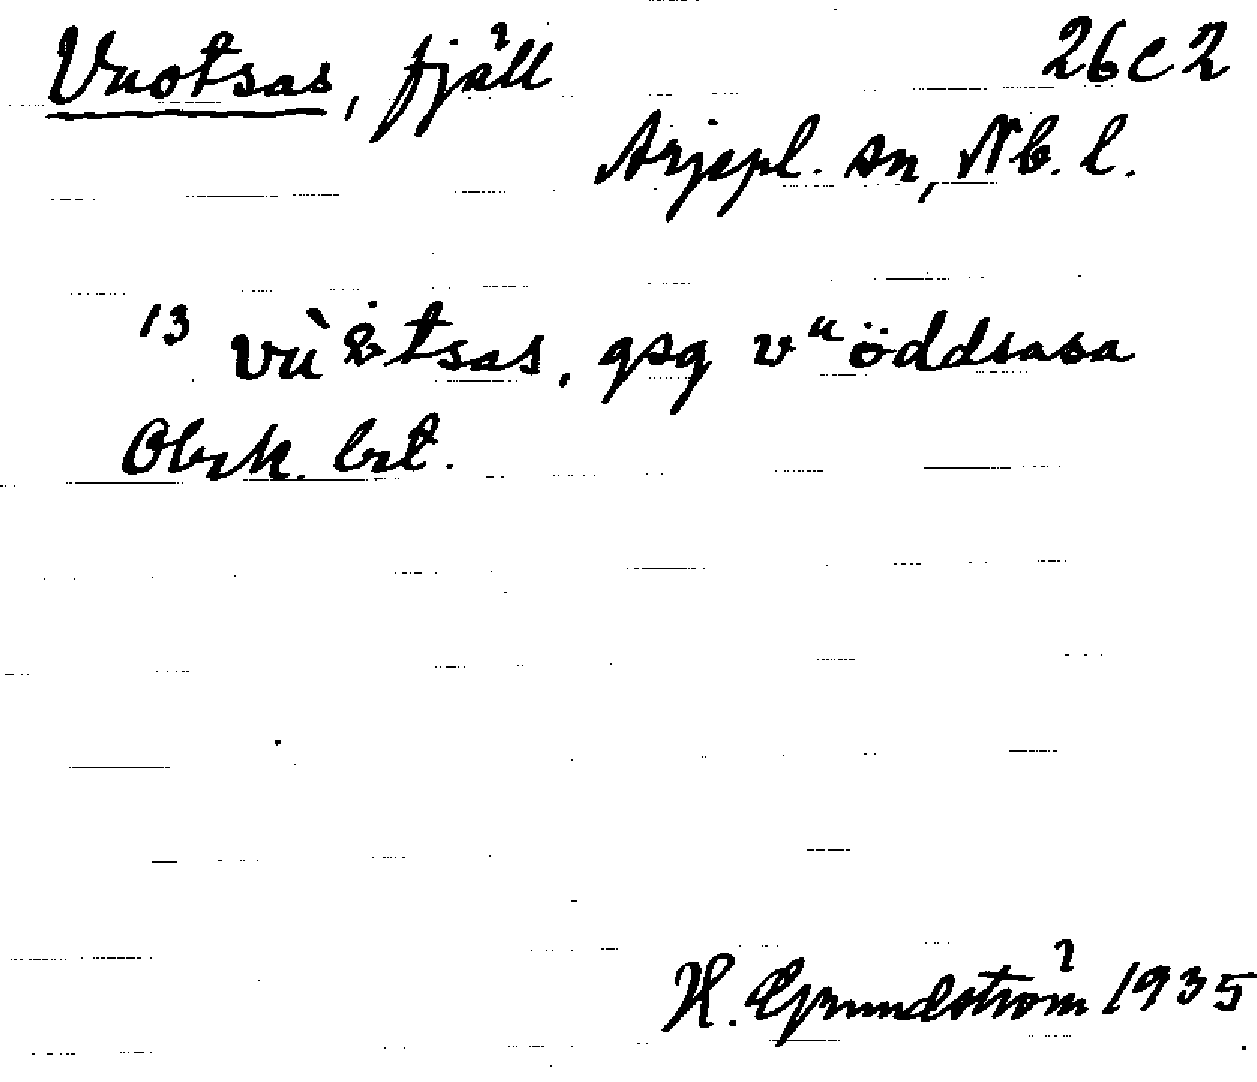 Vuotsas, fjäll 26 c 2
Arjepl. sn, Nb. l.
13 vù ȯtsas, gsg vᵘöddsasa
Obek. brt.
H. Grundström 1935